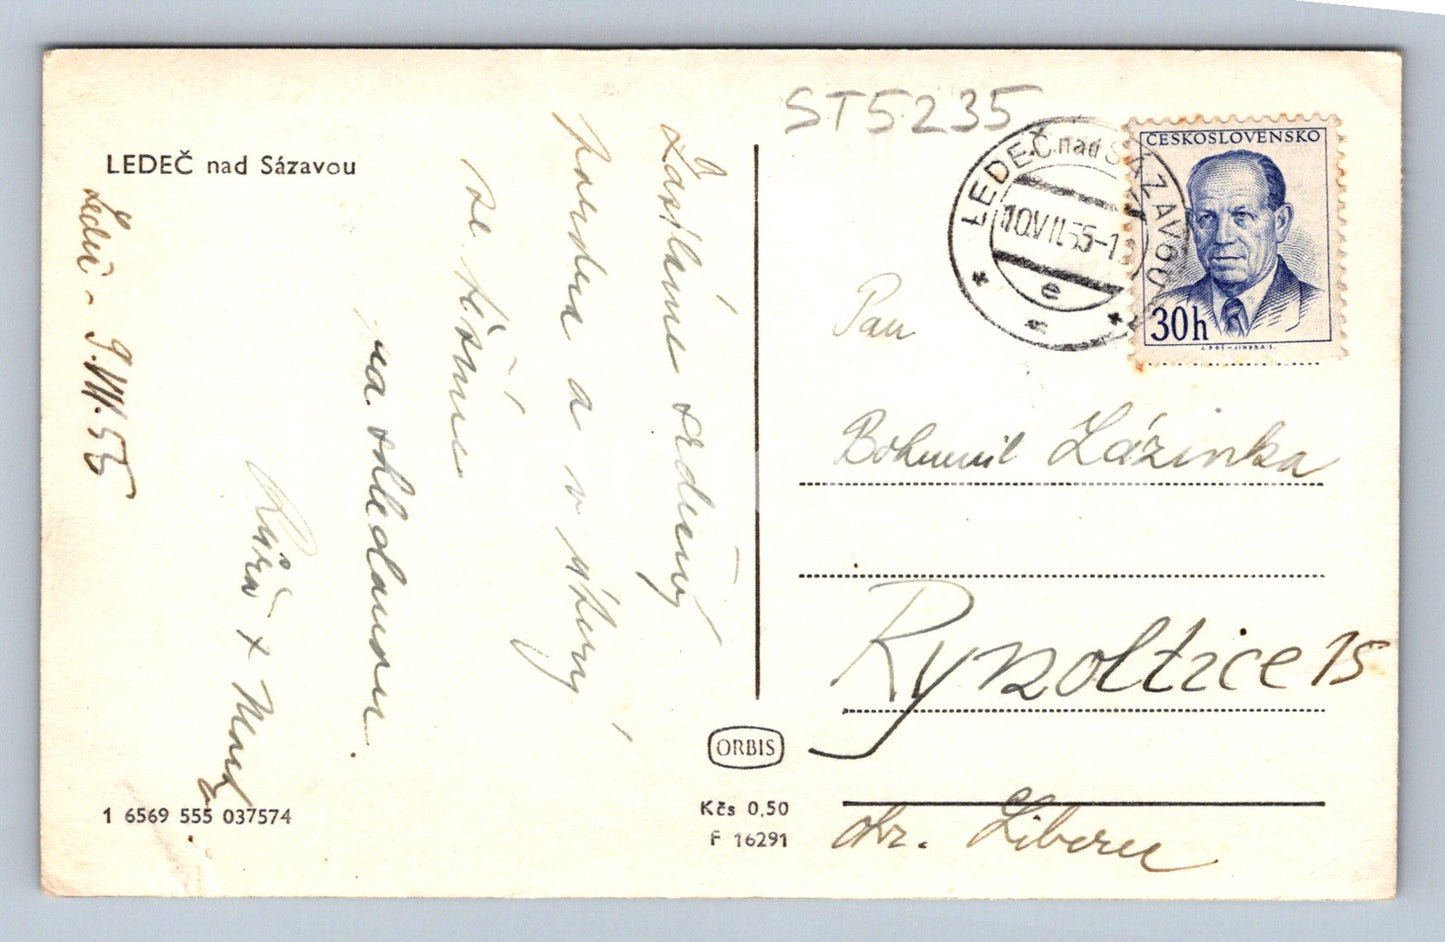 LEDEČ nad Sázavou
Ledeč - 9.VII.55
Zasíláme srdečný
pozdrav a v úterý
se těšíme
na shledanou.
1 6569 555 037574
ORBIS
Kčs 0,50
F 16291
ST5235
LEDEČ nad SÁZAVOU
10.VII.55-1
e
ČESKOSLOVENSKO
30h
Pan
Bohumil Lázinka
Rynoltice 15
okr. Liberec